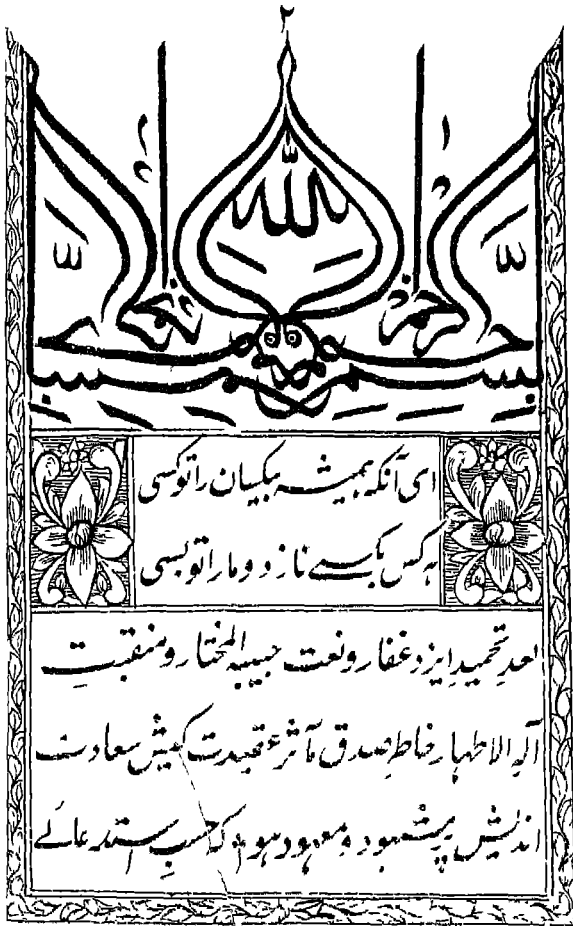 ۲
بسم الله الرحمن الرحیم
ای آنکہ ہمیشہ بیکسان را توکسی
ہر کس بکسے نازد و ما را تو بسی
بعدِ تحمیدِ ایزد غفار و نعت حبیبہ المختار و منقبتِ
آلہِ الاطہار خاطرِ صدق مآثر عقیدت کیش سعادت
اندیش پر مشہود و معہود ہو کہ حسبِ استدعائے